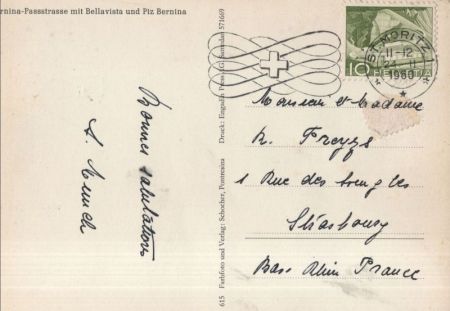 rnina-Passstrasse mit Bellavista und Piz Bernina
Bonnes salutations
615 Farbfoto und Verlag: Schocher, Pontresina
Druck: Engadin Press AG Samedan 571669
ST. MORITZ 1
11-12
24. II
1960
10 HELVETIA
Monsieur et Madame
1 Rue des
Strasbourg
Bas. Rhin France